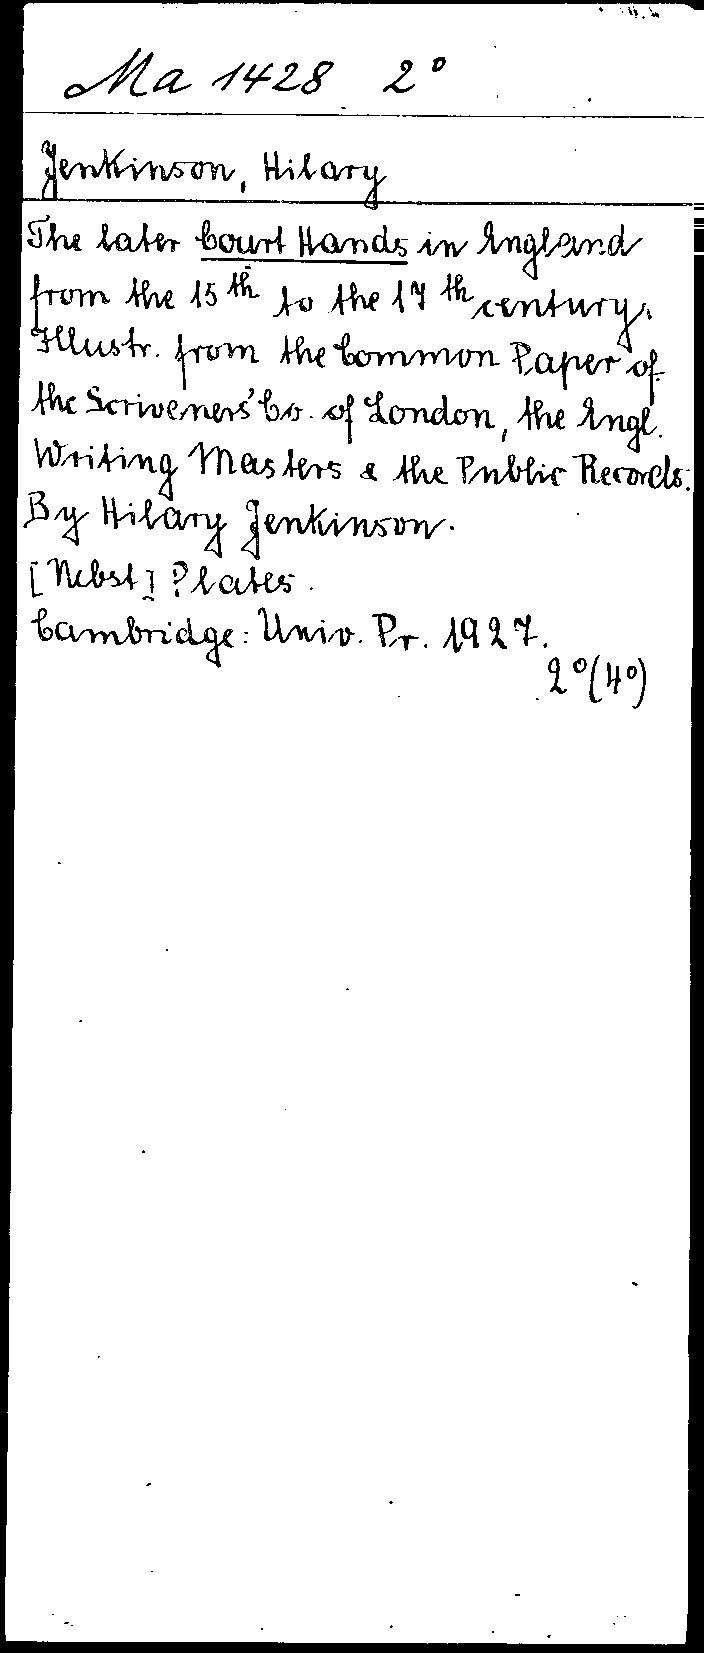 Ma 1428 2°
Jenkinson, Hilary
The later Court Hands in England
from the 15th to the 17th century.
Illustr. from the Common Paper of
the Scriveners' Co. of London, the Engl.
Writing Masters & the Public Records.
By Hilary Jenkinson.
[Nebst] Plates.
Cambridge: Univ. Pr. 1927.
2°(4°)